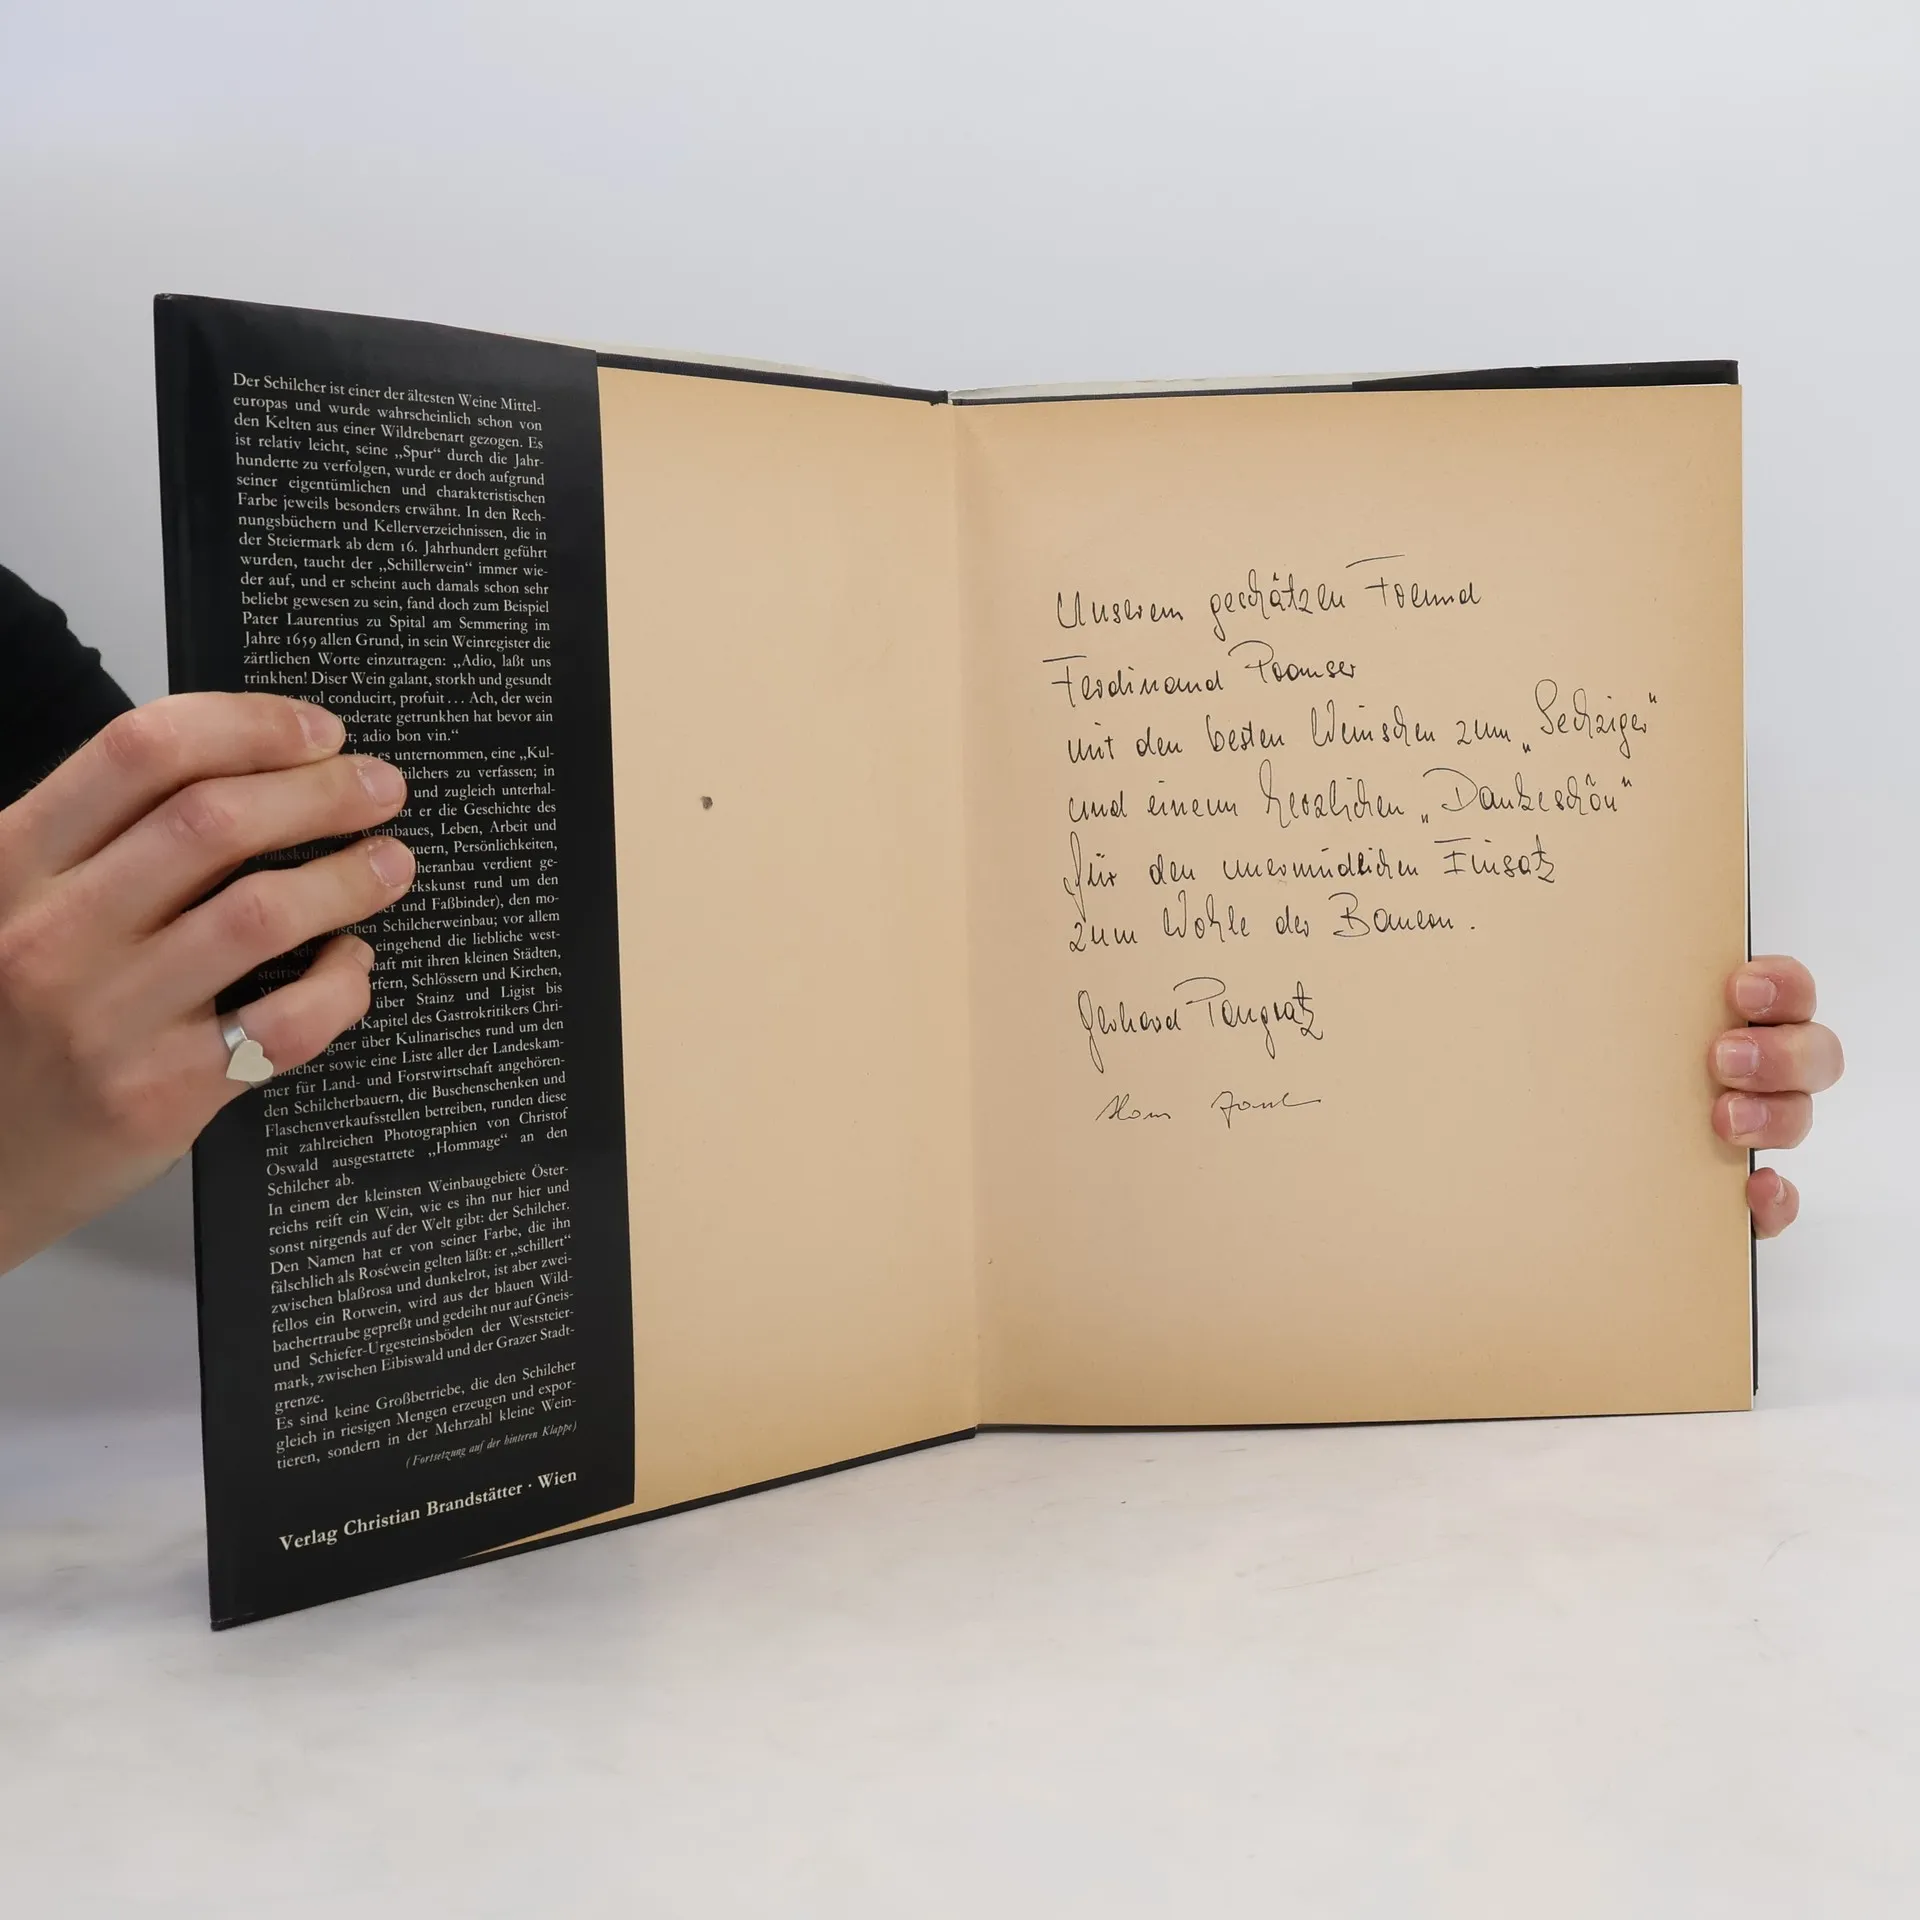 Der Schilcher ist einer der ältesten Weine Mittel-
europas und wurde wahrscheinlich schon von
den Kelten aus einer Wildrebenart gezogen. Es
ist relativ leicht, seine „Spur“ durch die Jahr-
hunderte zu verfolgen, wurde er doch aufgrund
seiner eigentümlichen und charakteristischen
Farbe jeweils besonders erwähnt. In den Rech-
nungsbüchern und Kellerverzeichnissen, die in
der Steiermark ab dem 16. Jahrhundert geführt
wurden, taucht der „Schillerwein“ immer wie-
der auf, und er scheint auch damals schon sehr
beliebt gewesen zu sein, fand doch zum Beispiel
Pater Laurentius zu Spital am Semmering im
Jahre 1659 allen Grund, in sein Weinregister die
zärtlichen Worte einzutragen: „Adio, laßt uns
trinkhen! Diser Wein galant, storkh und gesundt
wol conducirt, profuit... Ach, der wein
moderate getrunkhen hat bevor ain
adio bon vin.“
es unternommen, eine „Kul-
zu verfassen; in
und zugleich unterhal-
er die Geschichte des
Weinbaues, Leben, Arbeit und
Persönlichkeiten,
verdient ge-
rund um den
und Faßbinder), den mo-
Schilcherweinbau; vor allem
eingehend die liebliche west-
mit ihren kleinen Städten,
Schlössern und Kirchen,
über Stainz und Ligist bis
Kapitel des Gastrokritikers Chri-
über Kulinarisches rund um den
sowie eine Liste aller der Landeskam-
mer für Land- und Forstwirtschaft angehören-
den Schilcherbauern, die Buschenschenken und
Flaschenverkaufsstellen betreiben, runden diese
mit zahlreichen Photographien von Christof
Oswald ausgestattete „Hommage“ an den
Schilcher ab.
In einem der kleinsten Weinbaugebiete Öster-
reichs reift ein Wein, wie es ihn nur hier und
sonst nirgends auf der Welt gibt: der Schilcher.
Den Namen hat er von seiner Farbe, die ihn
fälschlich als Roséwein gelten läßt: er „schillert“
zwischen blaßrosa und dunkelrot, ist aber zwei-
fellos ein Rotwein, wird aus der blauen Wild-
bachertraube gepreßt und gedeiht nur auf Gneis-
und Schiefer-Urgesteinsböden der Weststeier-
mark, zwischen Eibiswald und der Grazer Stadt-
grenze.
Es sind keine Großbetriebe, die den Schilcher
gleich in riesigen Mengen erzeugen und expor-
tieren, sondern in der Mehrzahl kleine Wein-
(Fortsetzung auf der hinteren Klappe)
Verlag Christian Brandstätter · Wien
Unserem geschätzen Freund
Ferdinand
mit den besten Wünschen zum „Sechziger“
und einem herzlichen „Dankeschön“
für den unermüdlichen Einsatz
zum Wohle der Bauern.
Gerhard Pongratz
Hans